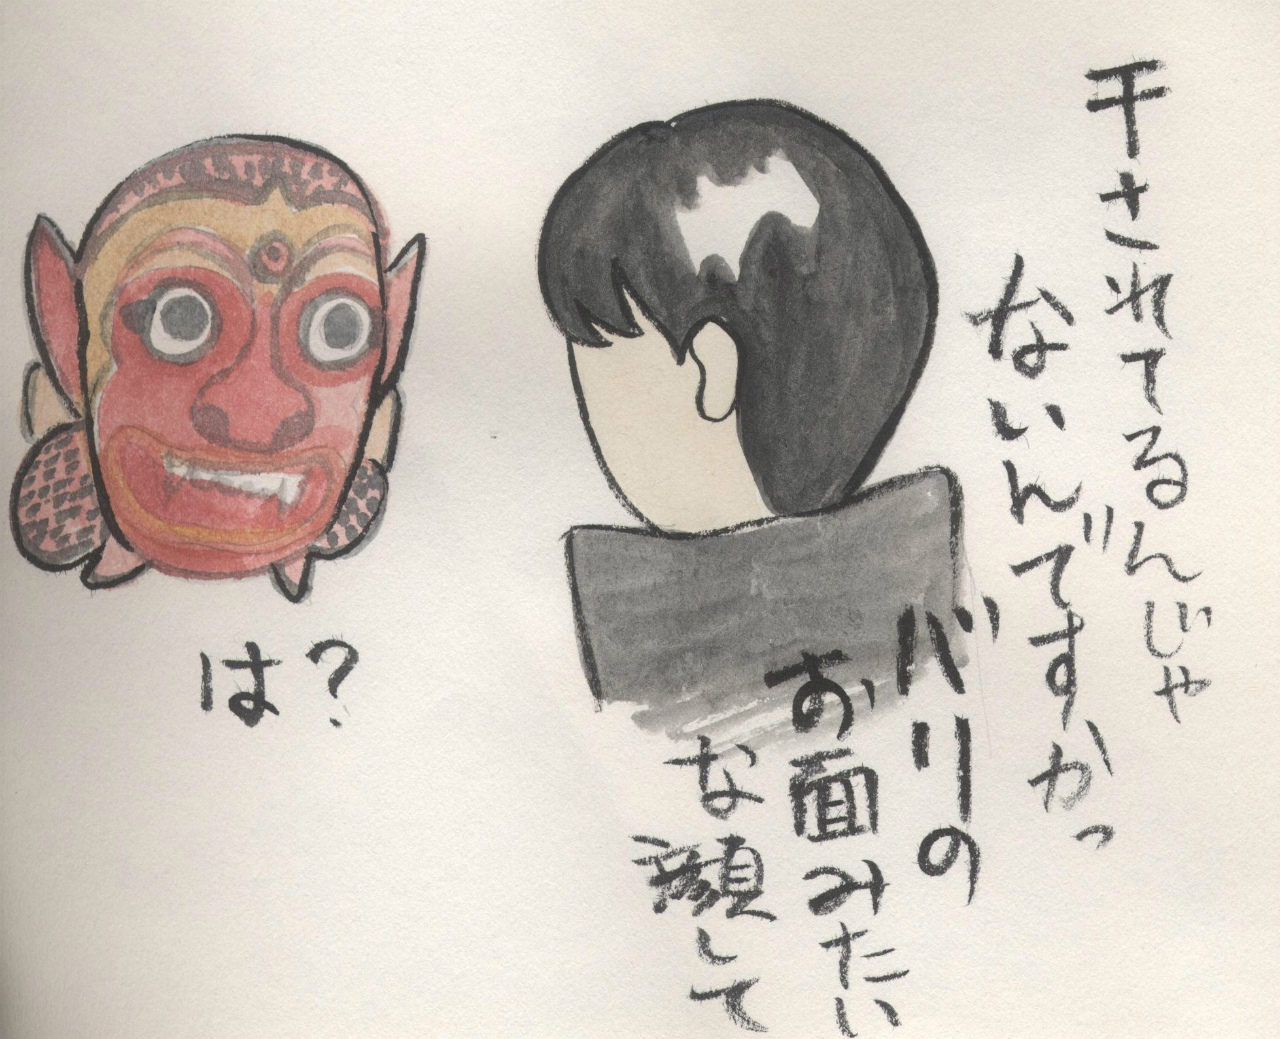 干されてるんじゃ
ないんですかっ
バリの
お面みたい
な顔して
は？